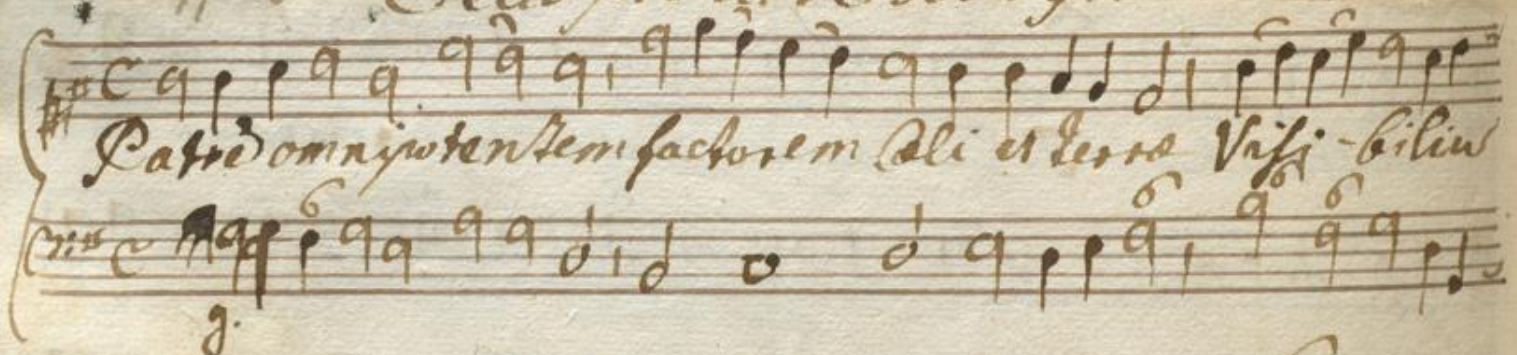 Patrē omnipotentem factorem Cæli et terræ Visi-biliū
6 6 6 6
g.